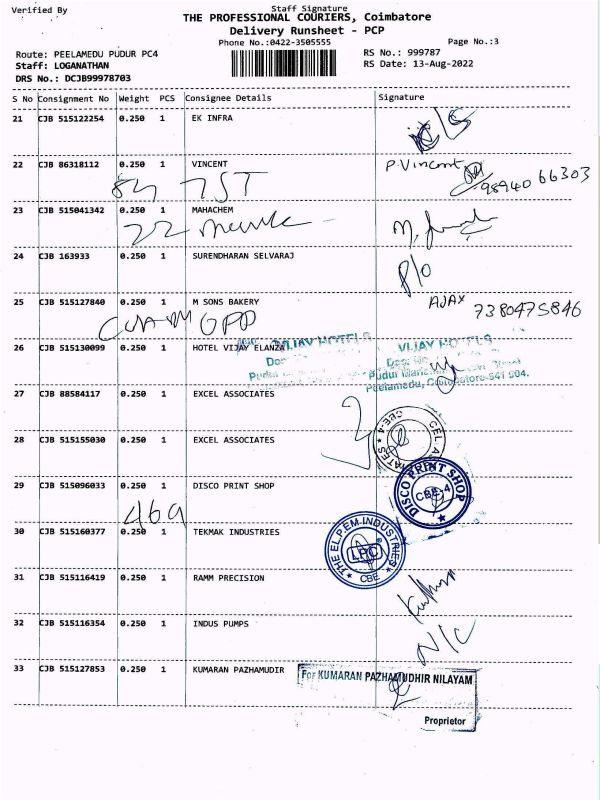 Verified By
Staff Signature
THE PROFESSIONAL COURIERS, Coimbatore
Delivery Runsheet - PCP
Phone No.:0422-3505555
Page No.:3
Route: PEELAMEDU PUDUR PC4
RS No.: 999787
Staff: LOGANATHAN
RS Date: 13-Aug-2022
DRS No.: DCJB99978703
S No Consignment No Weight PCS Consignee Details Signature
21 CJB 515122254 0.250 1 EK INFRA
22 CJB 86318112 0.250 1 VINCENT P.Vincent
98940 66303
23 CJB 515041342 0.250 1 MAHACHEM
24 CJB 163933 0.250 1 SURENDHARAN SELVARAJ
P/O
25 CJB 515127840 0.250 1 M SONS BAKERY AJAX 7380475846
26 CJB 515130099 0.250 1 HOTEL VIJAY ELANZA
VIJAY HOTELS VIJAY HOTELS
Peelamedu, Coimbatore-641 004.
27 CJB 88584117 0.250 1 EXCEL ASSOCIATES
28 CJB 515155030 0.250 1 EXCEL ASSOCIATES
CBE-4
29 CJB 515096033 0.250 1 DISCO PRINT SHOP
DISCO PRINT SHOP
CBE-4
469
30 CJB 515160377 0.250 1 TEKMAK INDUSTRIES
THE ELPEM INDUSTRIES
LPC
CBE
31 CJB 515116419 0.250 1 RAMM PRECISION
32 CJB 515116354 0.250 1 INDUS PUMPS
N/C
33 CJB 515127853 0.250 1 KUMARAN PAZHAMUDIR
For KUMARAN PAZHAMUDHIR NILAYAM
Proprietor